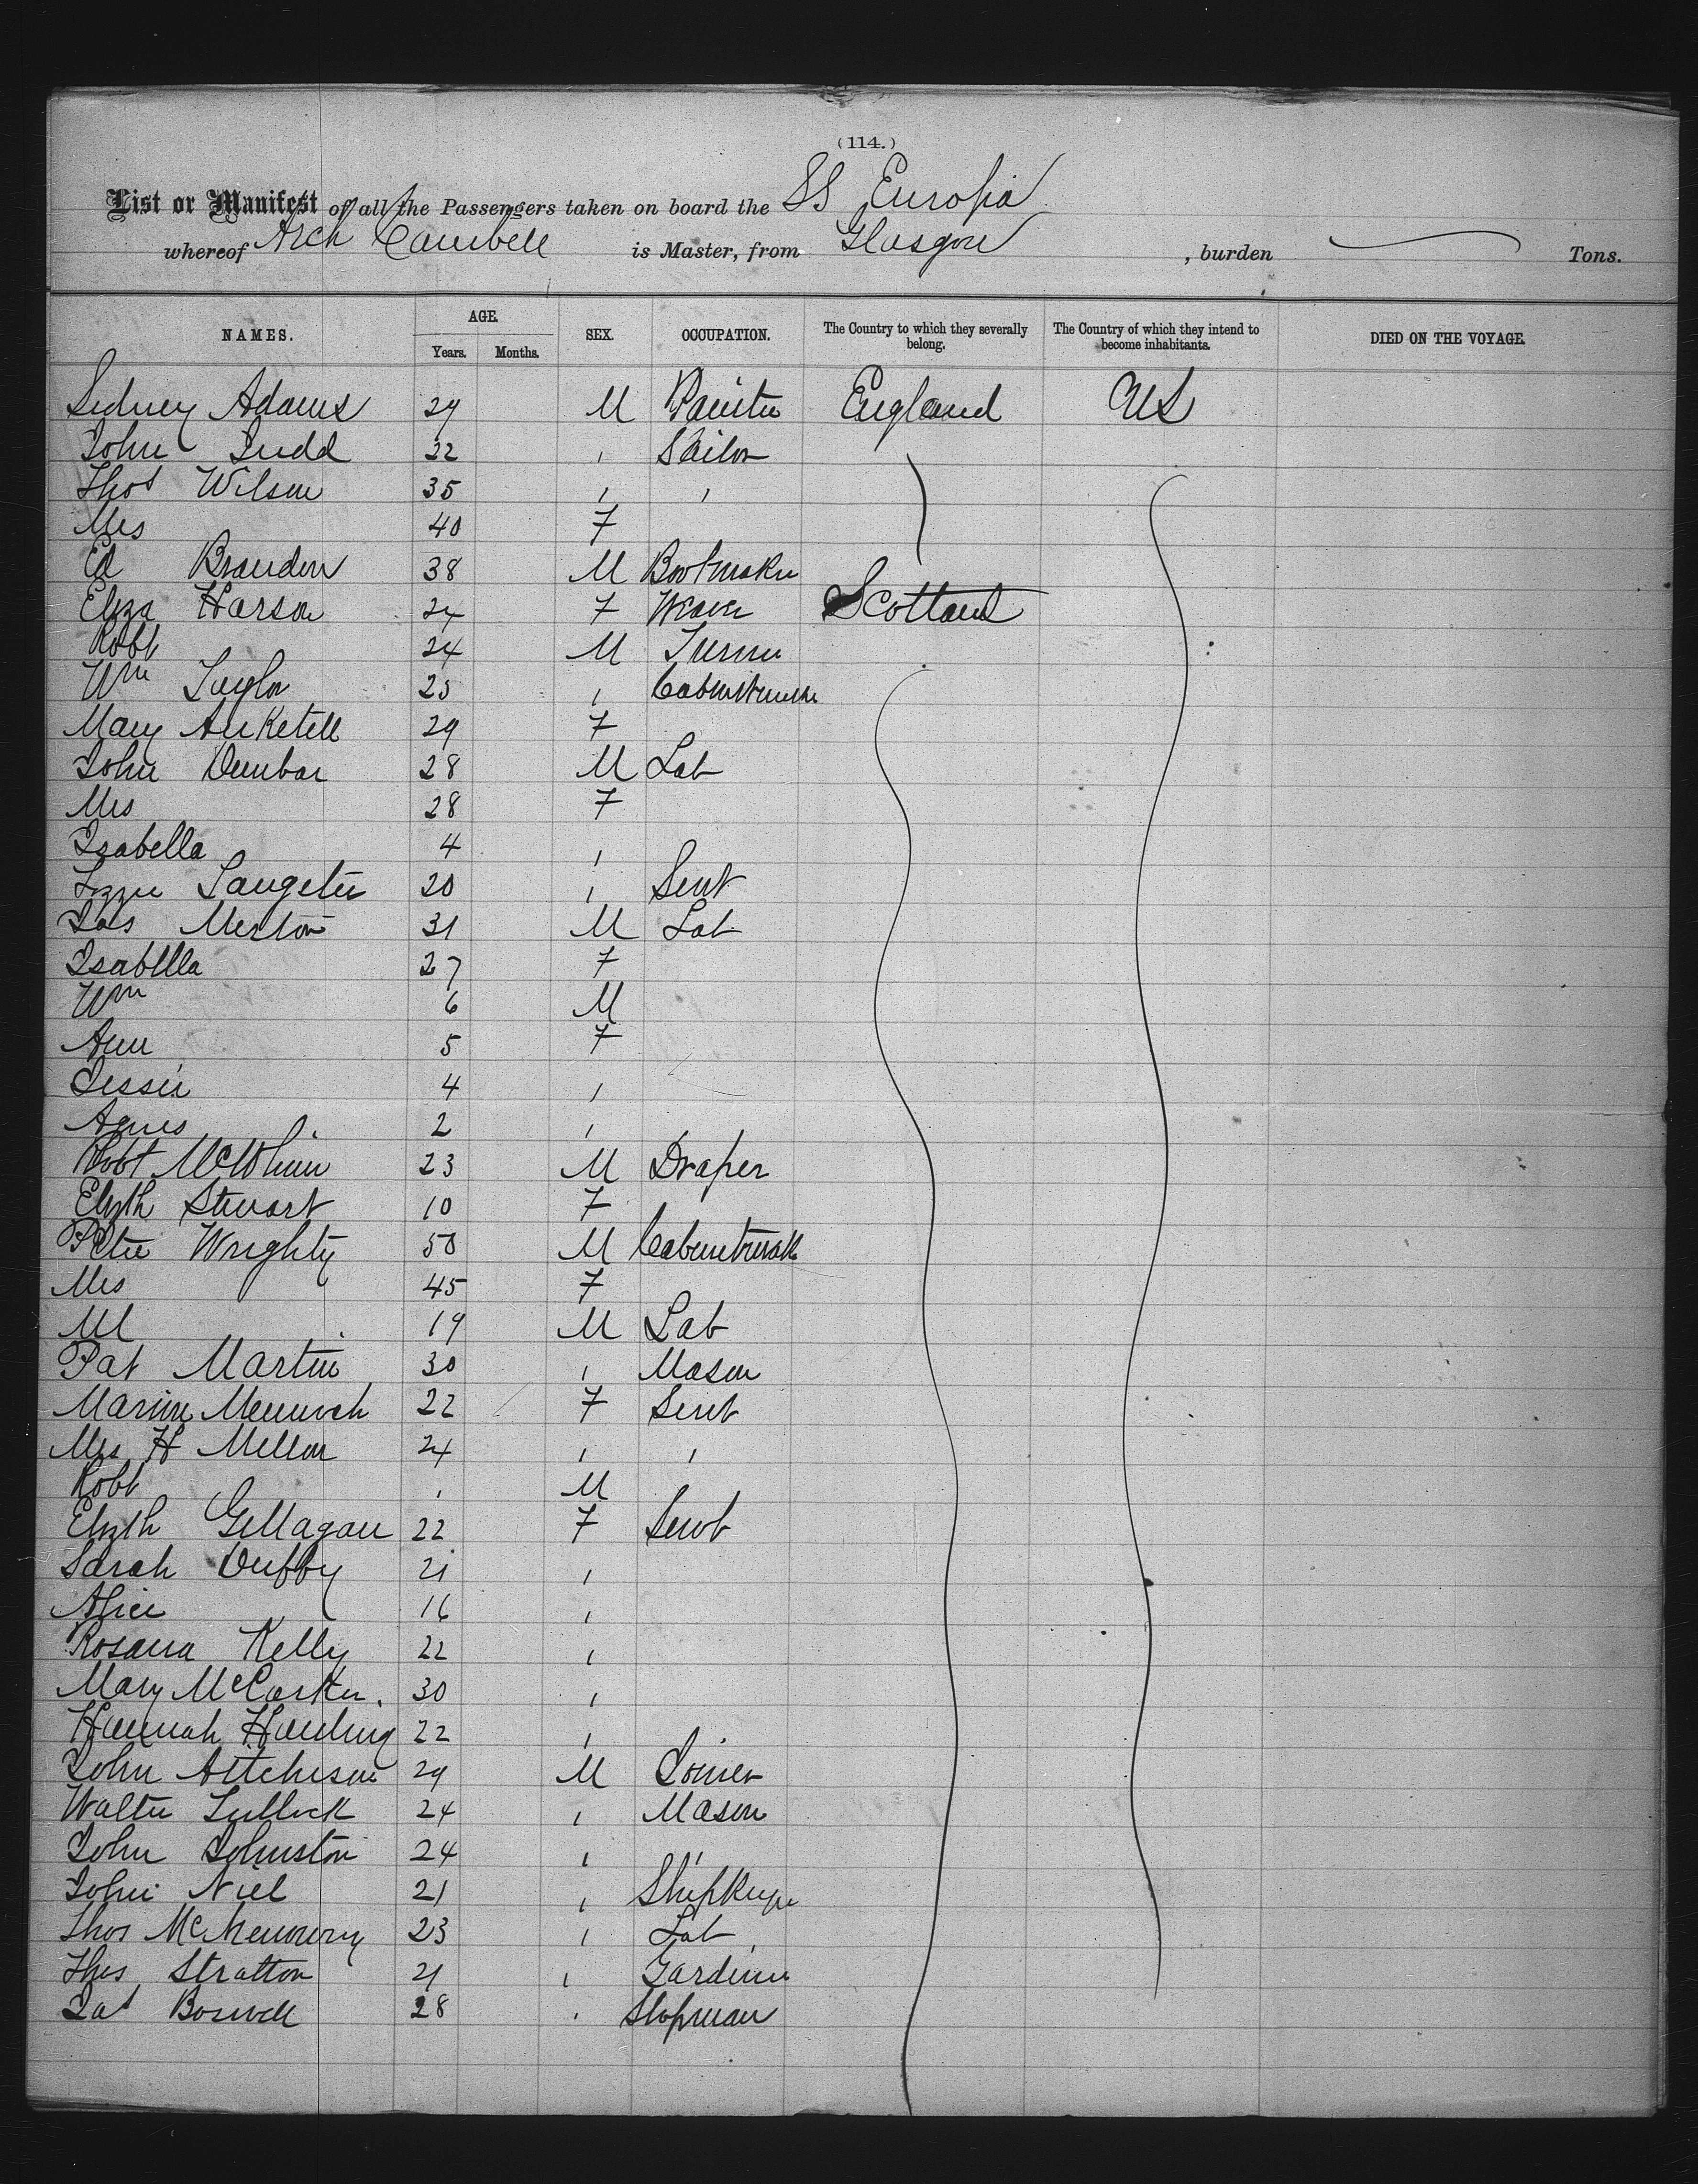 (114.)
List or Manifest of all the Passengers taken on board the SS Europia
whereof Arch Cambell is Master, from Glasgow , burden Tons.
NAMES. AGE. Years. Months. SEX. OCCUPATION. The Country to which they severally belong. The Country of which they intend to become inhabitants. DIED ON THE VOYAGE.
Sidney Adams 29 M Painter England US
John Judd 32 , Sailor
Thos Wilson 35 , ,
Mrs 40 F
Ed Brandon 38 M Bootmaker
Eliza Harson 24 F Weaver Scotland
Robt 24 M Turner
Wm Taylor 25 ,
Mary Anketell 29 F
John Dunbar 28 M Lab
Mrs 28 F
Isabella 4 ,
Lizzie 20 , Sevt
Jas Merton 31 M Lab
Isabella 27 F
Wm 6 M
Ann 5 F
Jessie 4 ,
Agnes 2 ,
Robt McWhinn 23 M Draper
Elizth Stewart 10 F
Peter Wrighty 50 M
Mrs 45 F
19 M Lab
Pat Martin 30 , Mason
22 F Sevt
Mrs H Mellon 24 , ,
Robt , M
Elizth Gillagan 22 F Sevt
Sarah Duffy 21 ,
Alice 16 ,
Rosana Kelly 22 ,
Mary McCarker. 30 ,
Hannah 22 ,
John Aitcheson 29 M Joiner
Walter Tullock 24 , Mason
John Johnston 24 , ,
John Niel 21 ,
Thos 23 , Lab
Thos Stratton 21 , Gardiner
Jas Boswell 28 , Shopman